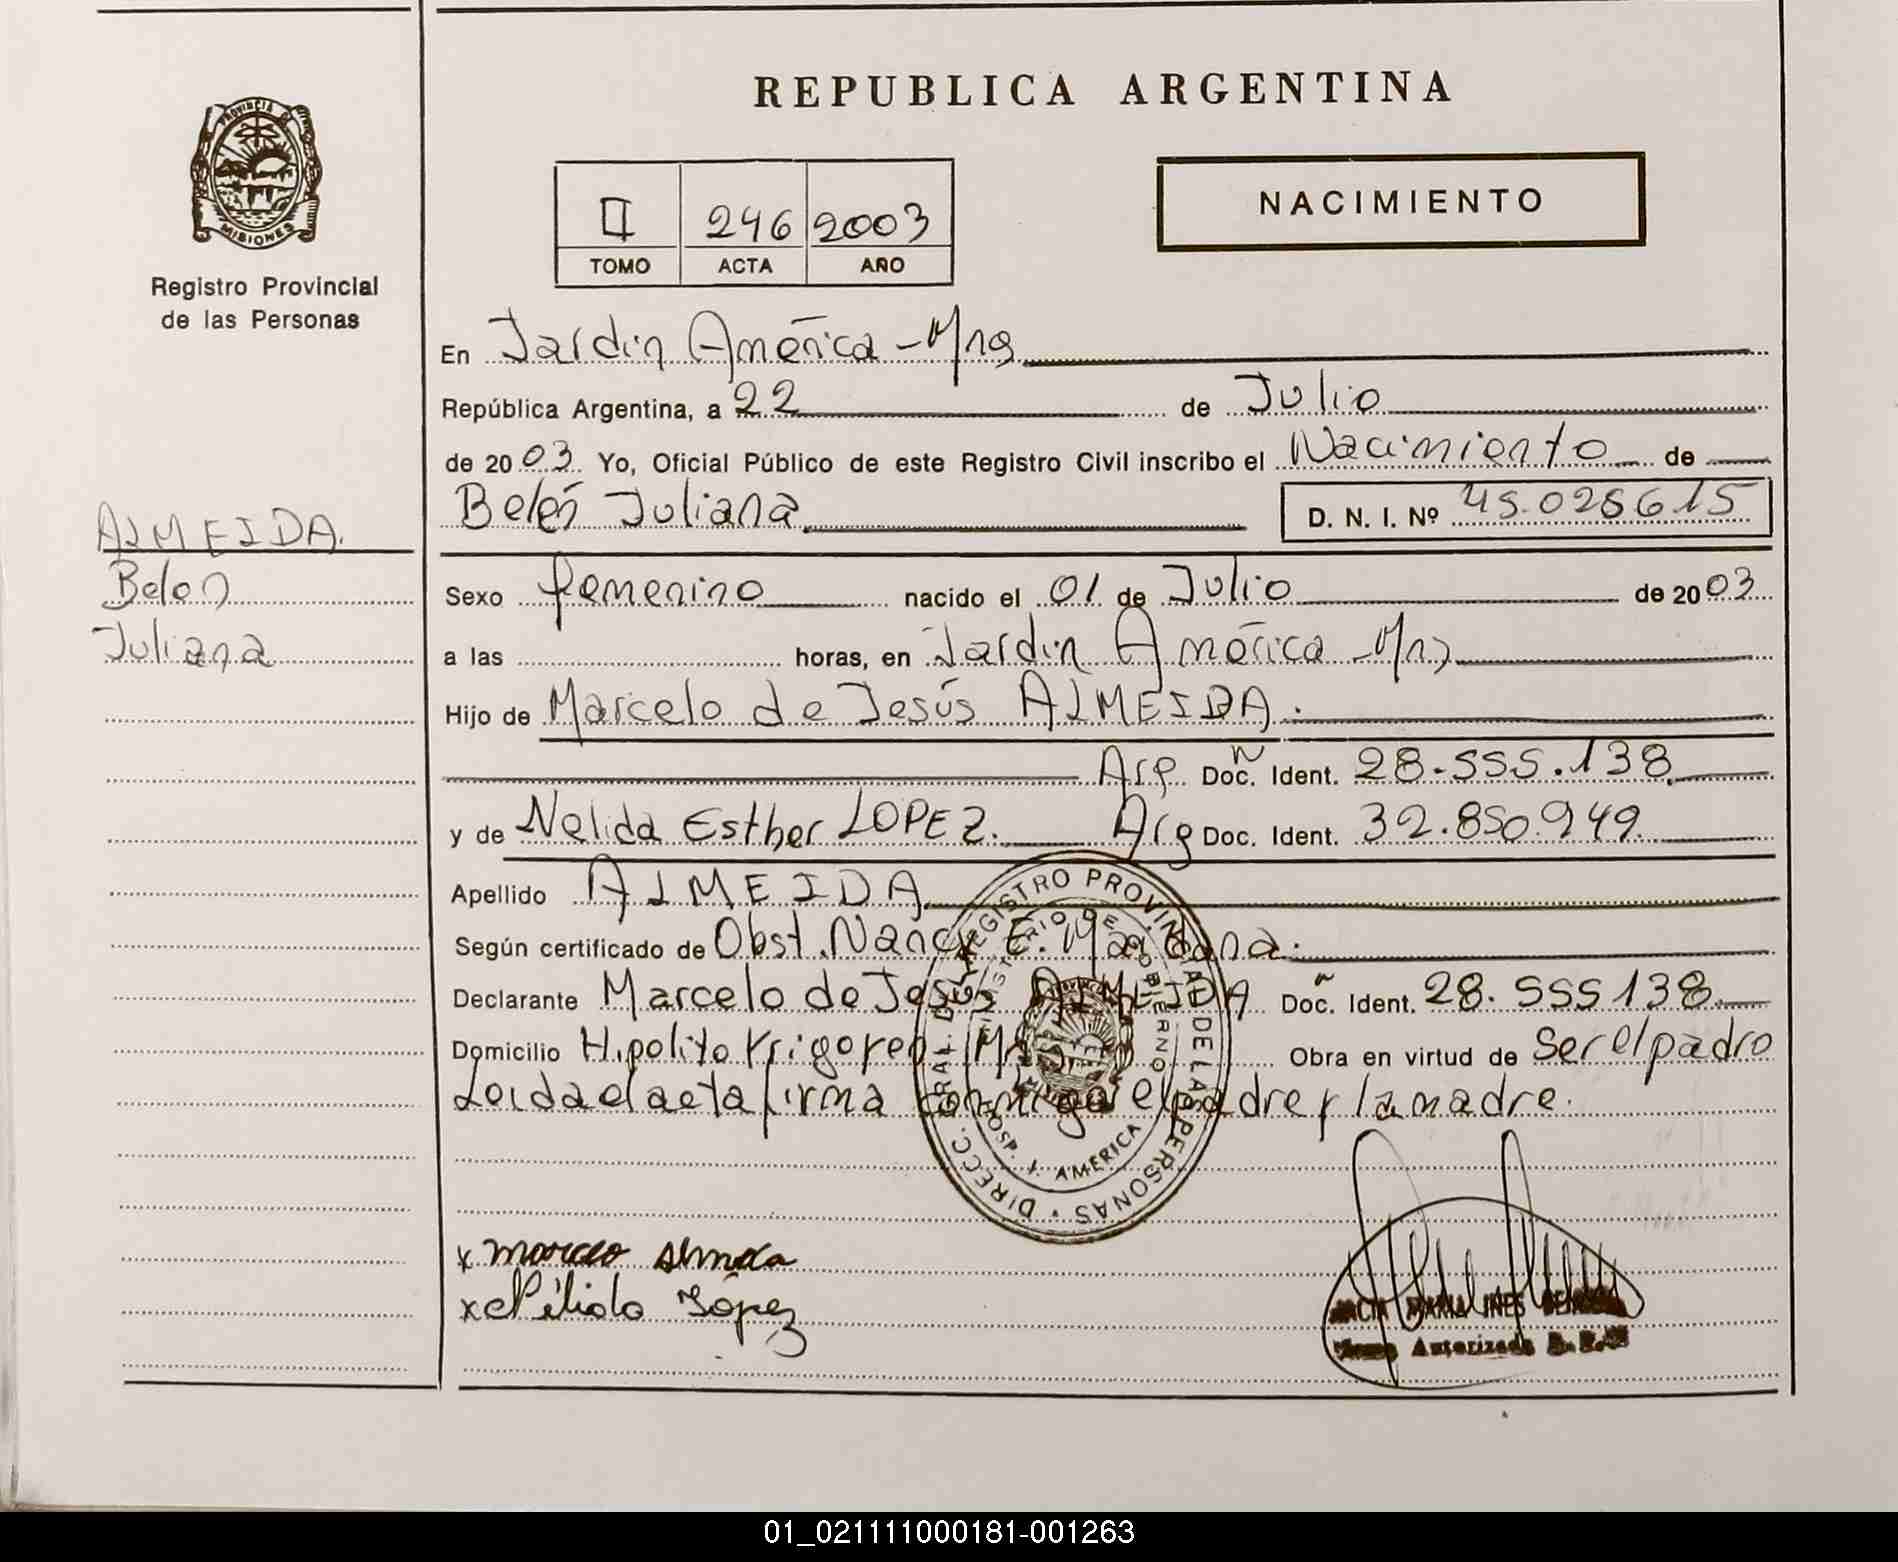 REPUBLICA ARGENTINA
PROVINCIA DE MISIONES
Registro Provincial
de las Personas
NACIMIENTO
II 246 2003
TOMO ACTA AÑO
En Jardin América - Mns
República Argentina, a 22 de Julio
de 2003 Yo, Oficial Público de este Registro Civil inscribo el Nacimiento de
Belén Juliana D. N. I. Nº 45.028615
ALMEIDA.
Belen
Juliana
Sexo femenino nacido el 01 de Julio de 2003
a las horas, en Jardin América - Mns
Hijo de Marcelo de Jesús ALMEIDA.
Arg Doc. Ident. 28.555.138
y de Nelida Esther LOPEZ. Arg Doc. Ident. 32.850.949
Apellido ALMEIDA
Según certificado de Obst. Nancy E.
Declarante Marcelo de Jesús ALMEIDA Doc. Ident. 28.555138
Domicilio Hipolito Yrigoyen - Mns Obra en virtud de Ser el padre
Leida el acta firma conmigo el padre y la madre.
DIRECC. GRAL. DEL REGISTRO PROVINCIAL DE LAS PERSONAS
MINISTERIO DE GOBIERNO
HOSP. J. AMERICA
x Marcelo Almeida
x Nélida López
MARIA INES
Autorizada
01_021111000181-001263